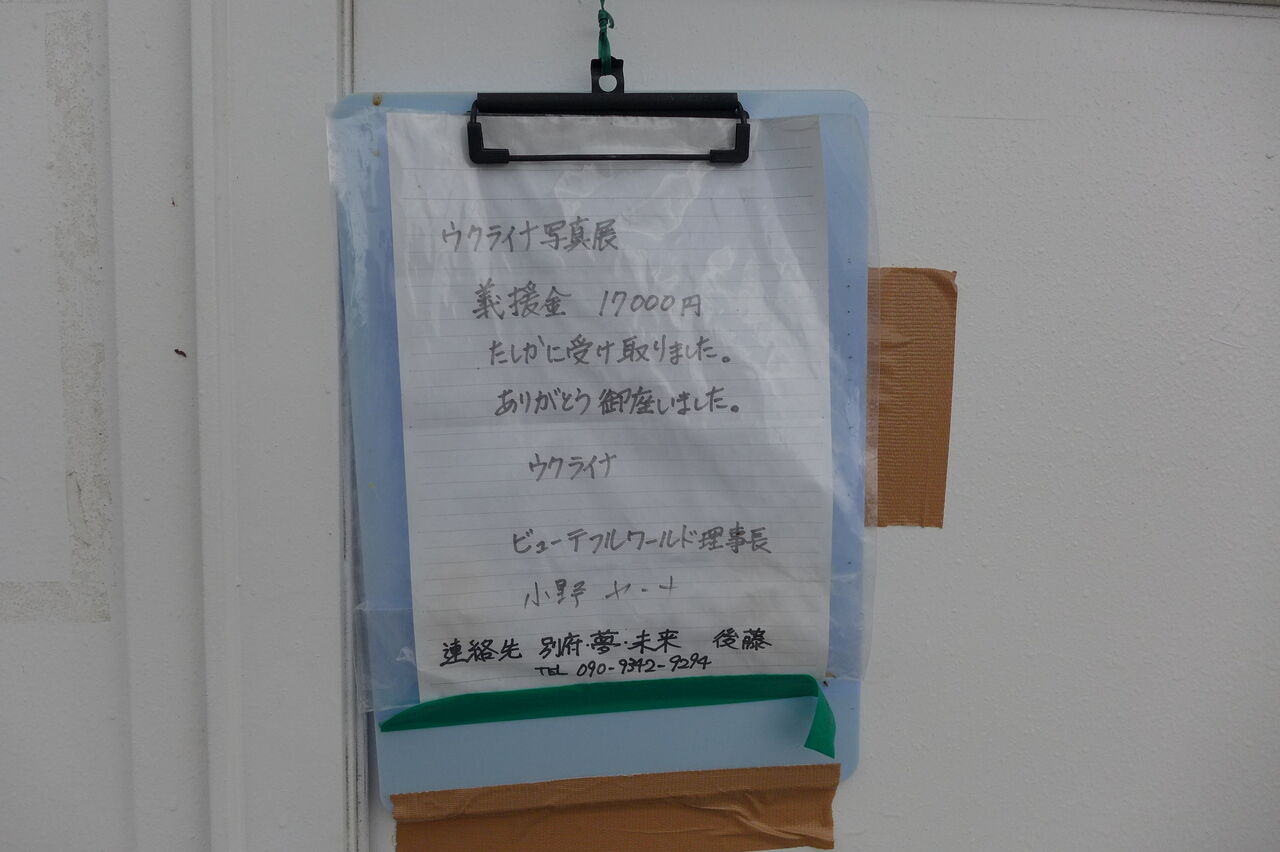 ウクライナ写真展
義援金 17000円
たしかに受け取りました。
ありがとう御座いました。
ウクライナ
ビューテフルワールド理事長
小野 ヤーナ
連絡先 別府・夢・未来 後藤
TEL 090-9342-9294